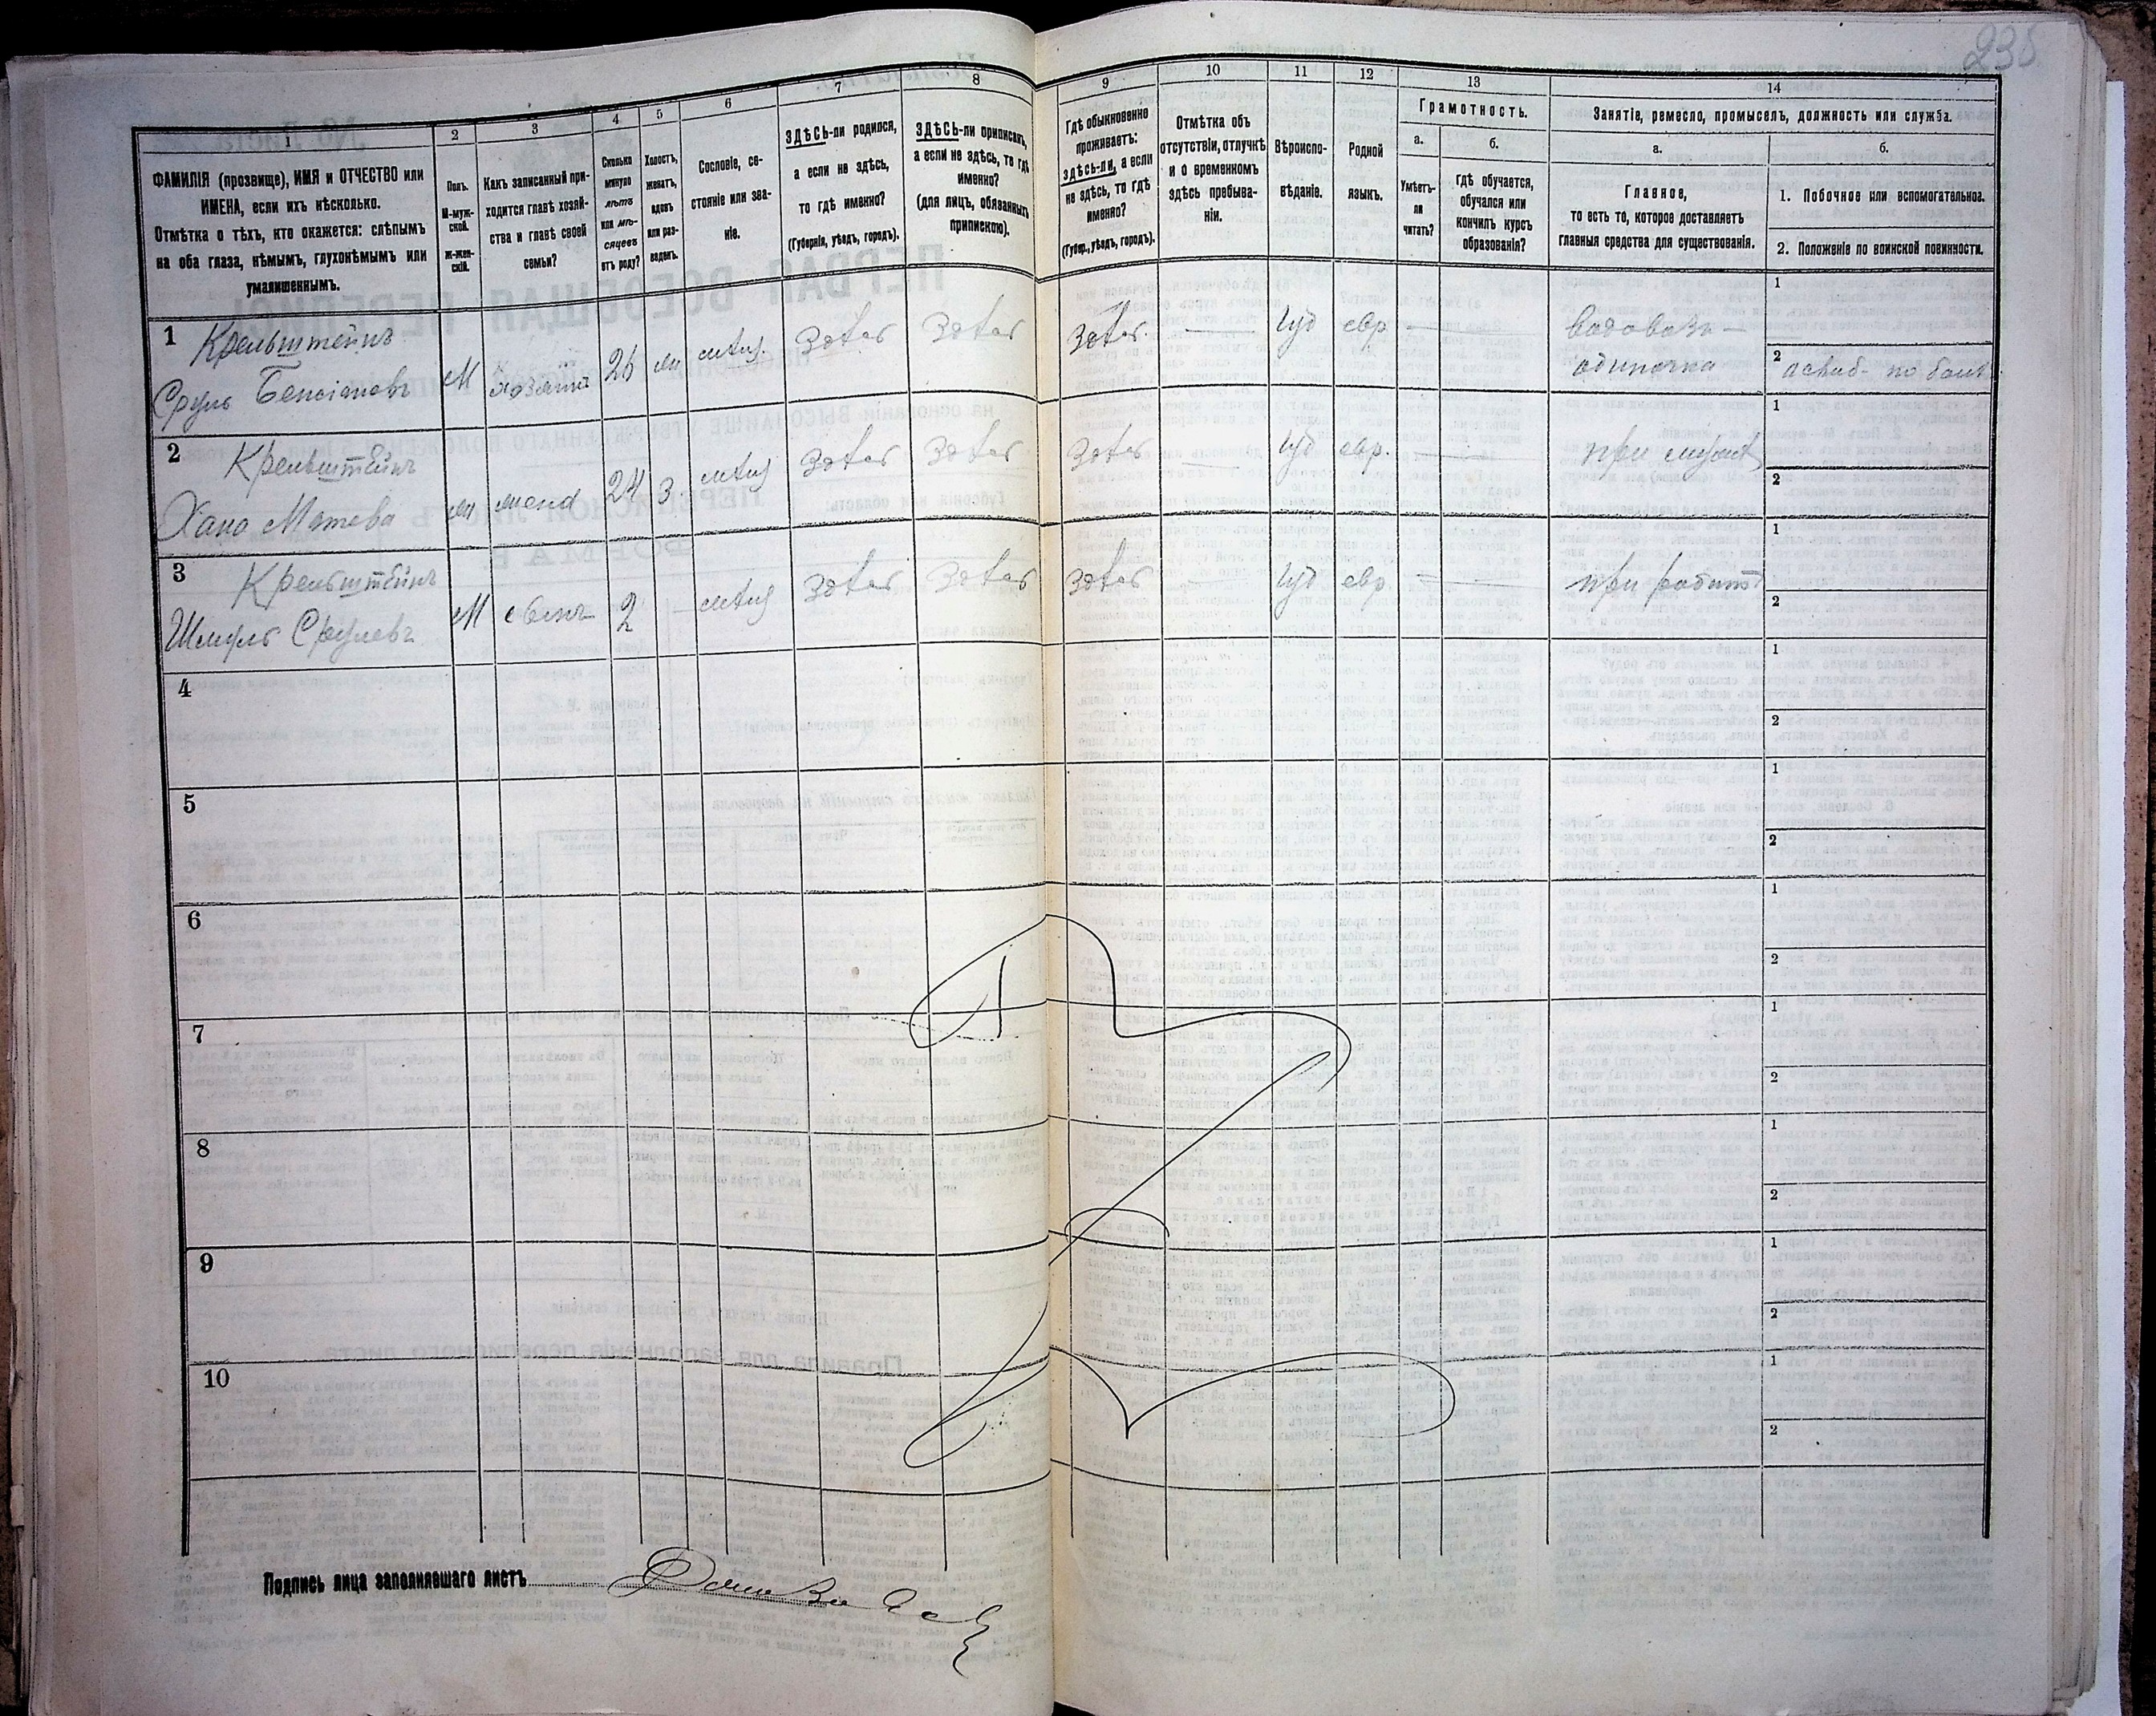 235
1 2 3 4 5 6 7 8 9 10 11 12 13 14
ФАМИЛІЯ (прозвище), ИМЯ и ОТЧЕСТВО или
ИМЕНА, если ихъ нѣсколько.
Отмѣтка о тѣхъ, кто окажется: слѣпымъ
на оба глаза, нѣмымъ, глухонѣмымъ или
умалишеннымъ.
Полъ.
М-муж-
ской.
Ж-жен-
скій.
Какъ записанный при-
ходится главѣ хозяй-
ства и главѣ своей
семьи?
Сколько
минуло
лѣтъ
или мѣ-
сяцевъ
отъ роду?
Холостъ,
женатъ,
вдовъ
или раз-
веденъ.
Сословіе, со-
стояніе или зва-
ніе.
ЗДѢСЬ-ли родился,
а если не здѣсь,
то гдѣ именно?
(Губернія, уѣздъ, городъ).
ЗДѢСЬ-ли приписанъ,
а если не здѣсь, то гдѣ
именно?
(для лицъ, обязанныхъ
припискою).
Гдѣ обыкновенно
проживаетъ:
здѣсь-ли, а если
не здѣсь, то гдѣ
именно?
(Губер., уѣздъ, городъ).
Отмѣтка объ
отсутствіи, отлучкѣ
и о временномъ
здѣсь пребыва-
ніи.
Вѣроиспо-
вѣданіе.
Родной
языкъ.
Грамотность.
а.
Умѣетъ-
ли
читать?
б.
Гдѣ обучается,
обучался или
кончилъ курсъ
образованія?
Занятіе, ремесло, промыселъ, должность или служба.
а.
Главное,
то есть то, которое доставляетъ
главныя средства для существованія.
б.
1. Побочное или вспомогательное.
2. Положеніе по воинской повинности.
1 Крельштейнъ
Сруль Бенсіановъ М хозяинъ 26 мѣщ. здѣсь здѣсь здѣсь. — Іуд евр — водовозъ —
одиночка
1
2
2 Крельштейнъ
Хана Мотева жена 24 З мѣщ здѣсь здѣсь здѣсь — Іуд евр. — при мужѣ
1
2
3 Крельштейнъ
Шмуль Срулевъ М сынъ 2 — мѣщ здѣсь здѣсь здѣсь — Іуд евр. —
1
2
4
1
2
5
1
2
6
1
2
7
1
2
8
1
2
9
1
2
10
1
2
Подпись лица заполнявшаго листъ